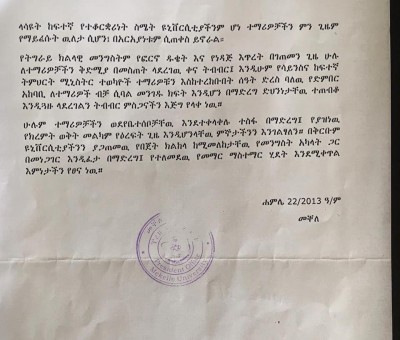 ላሳዩት ከፍተኛ የተቆርቋሪነት ስሜት ዩኒቨርሲቲያችንም ሆነ ተማሪዎቻችን ምን ጊዜም
የማይረሱት ዉለታ ሲሆን፤ በአርአያነቱም ሲጠቀስ ይኖራል።
የትግራይ ክልላዊ መንግስትም የፉርኖ ዱቄት እና የነዳጅ እጥረት በገጠመን ጊዜ ሁሉ
ለተማሪዎቻችን ቅድሚያ በመስጠት ላደረገዉ ቀና ትብብር፤ እንዲሁም የሳይንስና ከፍተኛ
ትምህርት ሚኒስትር ተወካዮች ተማሪዎቹን እስከተረከቡበት ሰዓት ድረስ ባለዉ የድምበር
አከባቢ ለተማሪዎች ብቻ ሲባል መንገዱ ክፍት እንዲሆን በማድረግ ድህንነታቸዉ ተጠብቆ
እንዲጓዙ ላደረገልን ትብብር ምስጋናችን እጅግ የላቀ ነዉ።
ሁሉም ተማሪዎቻችን ወደየቤተሰቦቻቸዉ እንደተቀላቀሉ ተስፋ በማድረግ፤ የያዝነዉ
የክረምት ወቅት መልካም የዕረፍት ጊዜ እንዲሆንላቸዉ ምኞታችንን እንገልፃለን። በቅርቡም
ዩኒቨርሲቲያችንን ያጋጠመዉ የበጀት ክልከላ ከሚመለከታቸዉ የመንግስት አካላት ጋር
በመነጋገር እንዲፈታ በማድረግ፤ የተለመደዉ የመማር ማስተማር ሂደት እንደሚቀጥል
እምነታችን የፀና ነዉ።
ሐምሌ 22/2013 ዓ/ም
መቐለ
President Office
Mekelle University